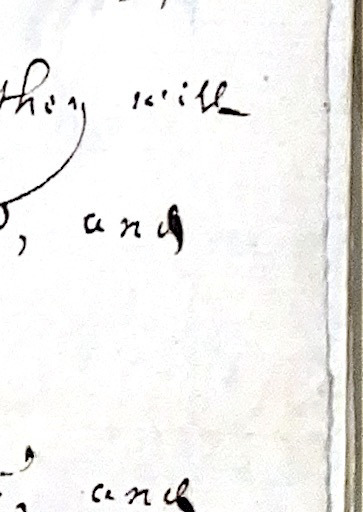 they will
, and
, and